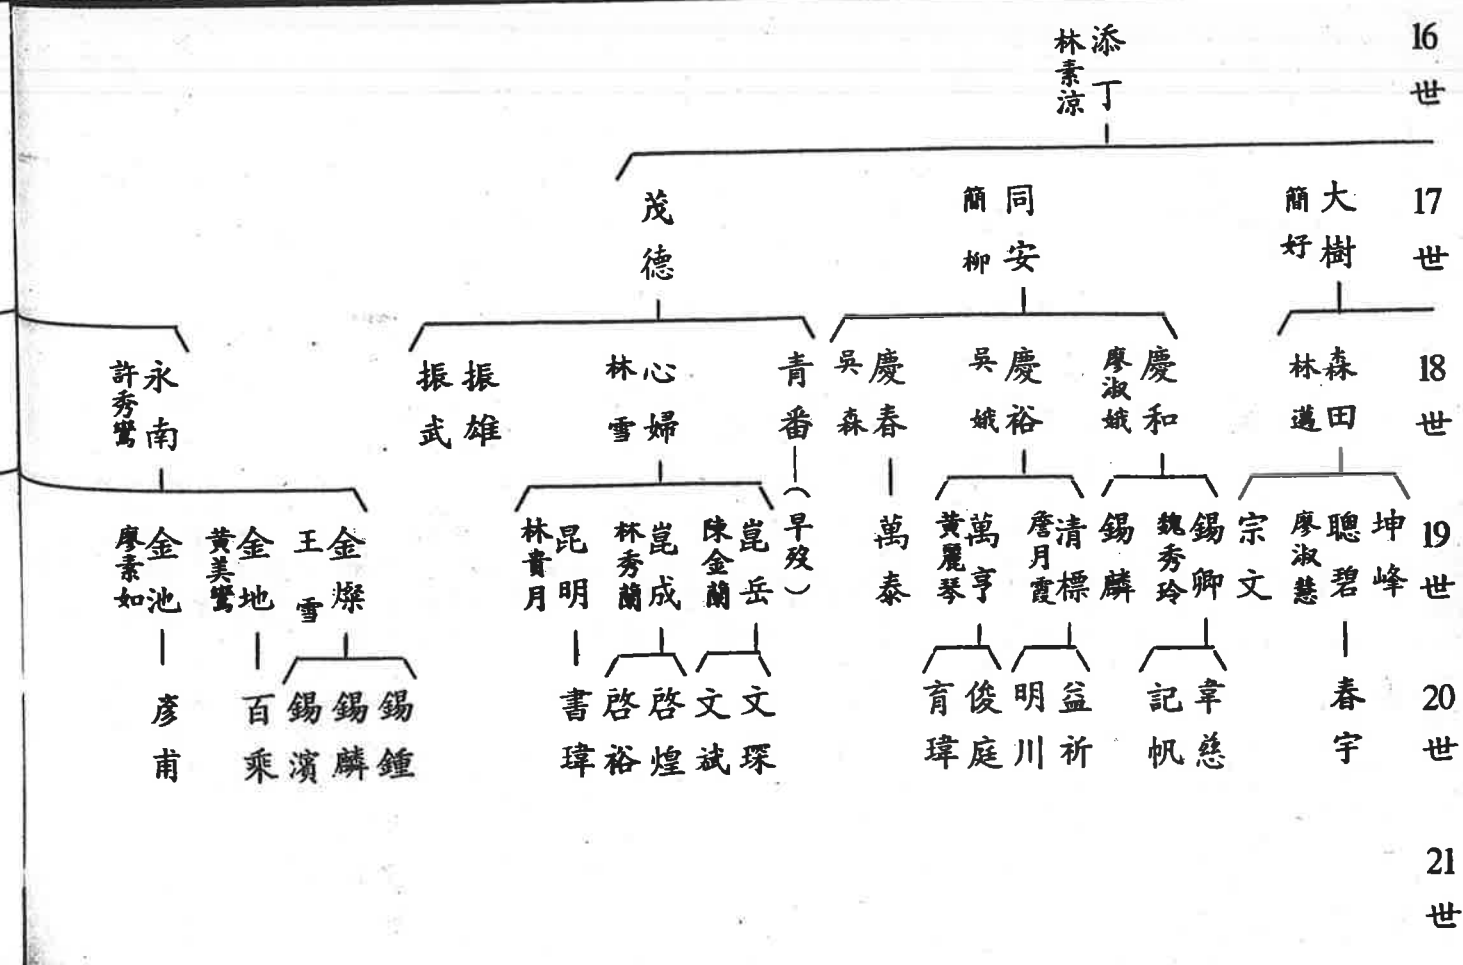 16世
添丁
林素涼
17世
大樹
簡好
同安
簡柳
茂德
18世
森田
林邁
慶和
廖淑娥
慶裕
吳娥
慶春
吳森
青番
心婦
林雪
振雄
振武
永南
許秀鸞
19世
坤峰
聰碧
廖淑慧
宗文
錫卿
魏秀玲
錫麟
清標
詹月霞
萬亨
黃麗琴
萬泰
（早歿）
崑岳
陳金蘭
崑成
林秀蘭
昆明
林貴月
金燦
王雪
金地
黃美鸞
金池
廖素如
20世
春宇
韋慈
記帆
益祈
明川
俊庭
育瑋
文琛
文斌
啓煌
啓裕
書瑋
錫鍾
錫麟
錫濱
百乘
彥甫
21世